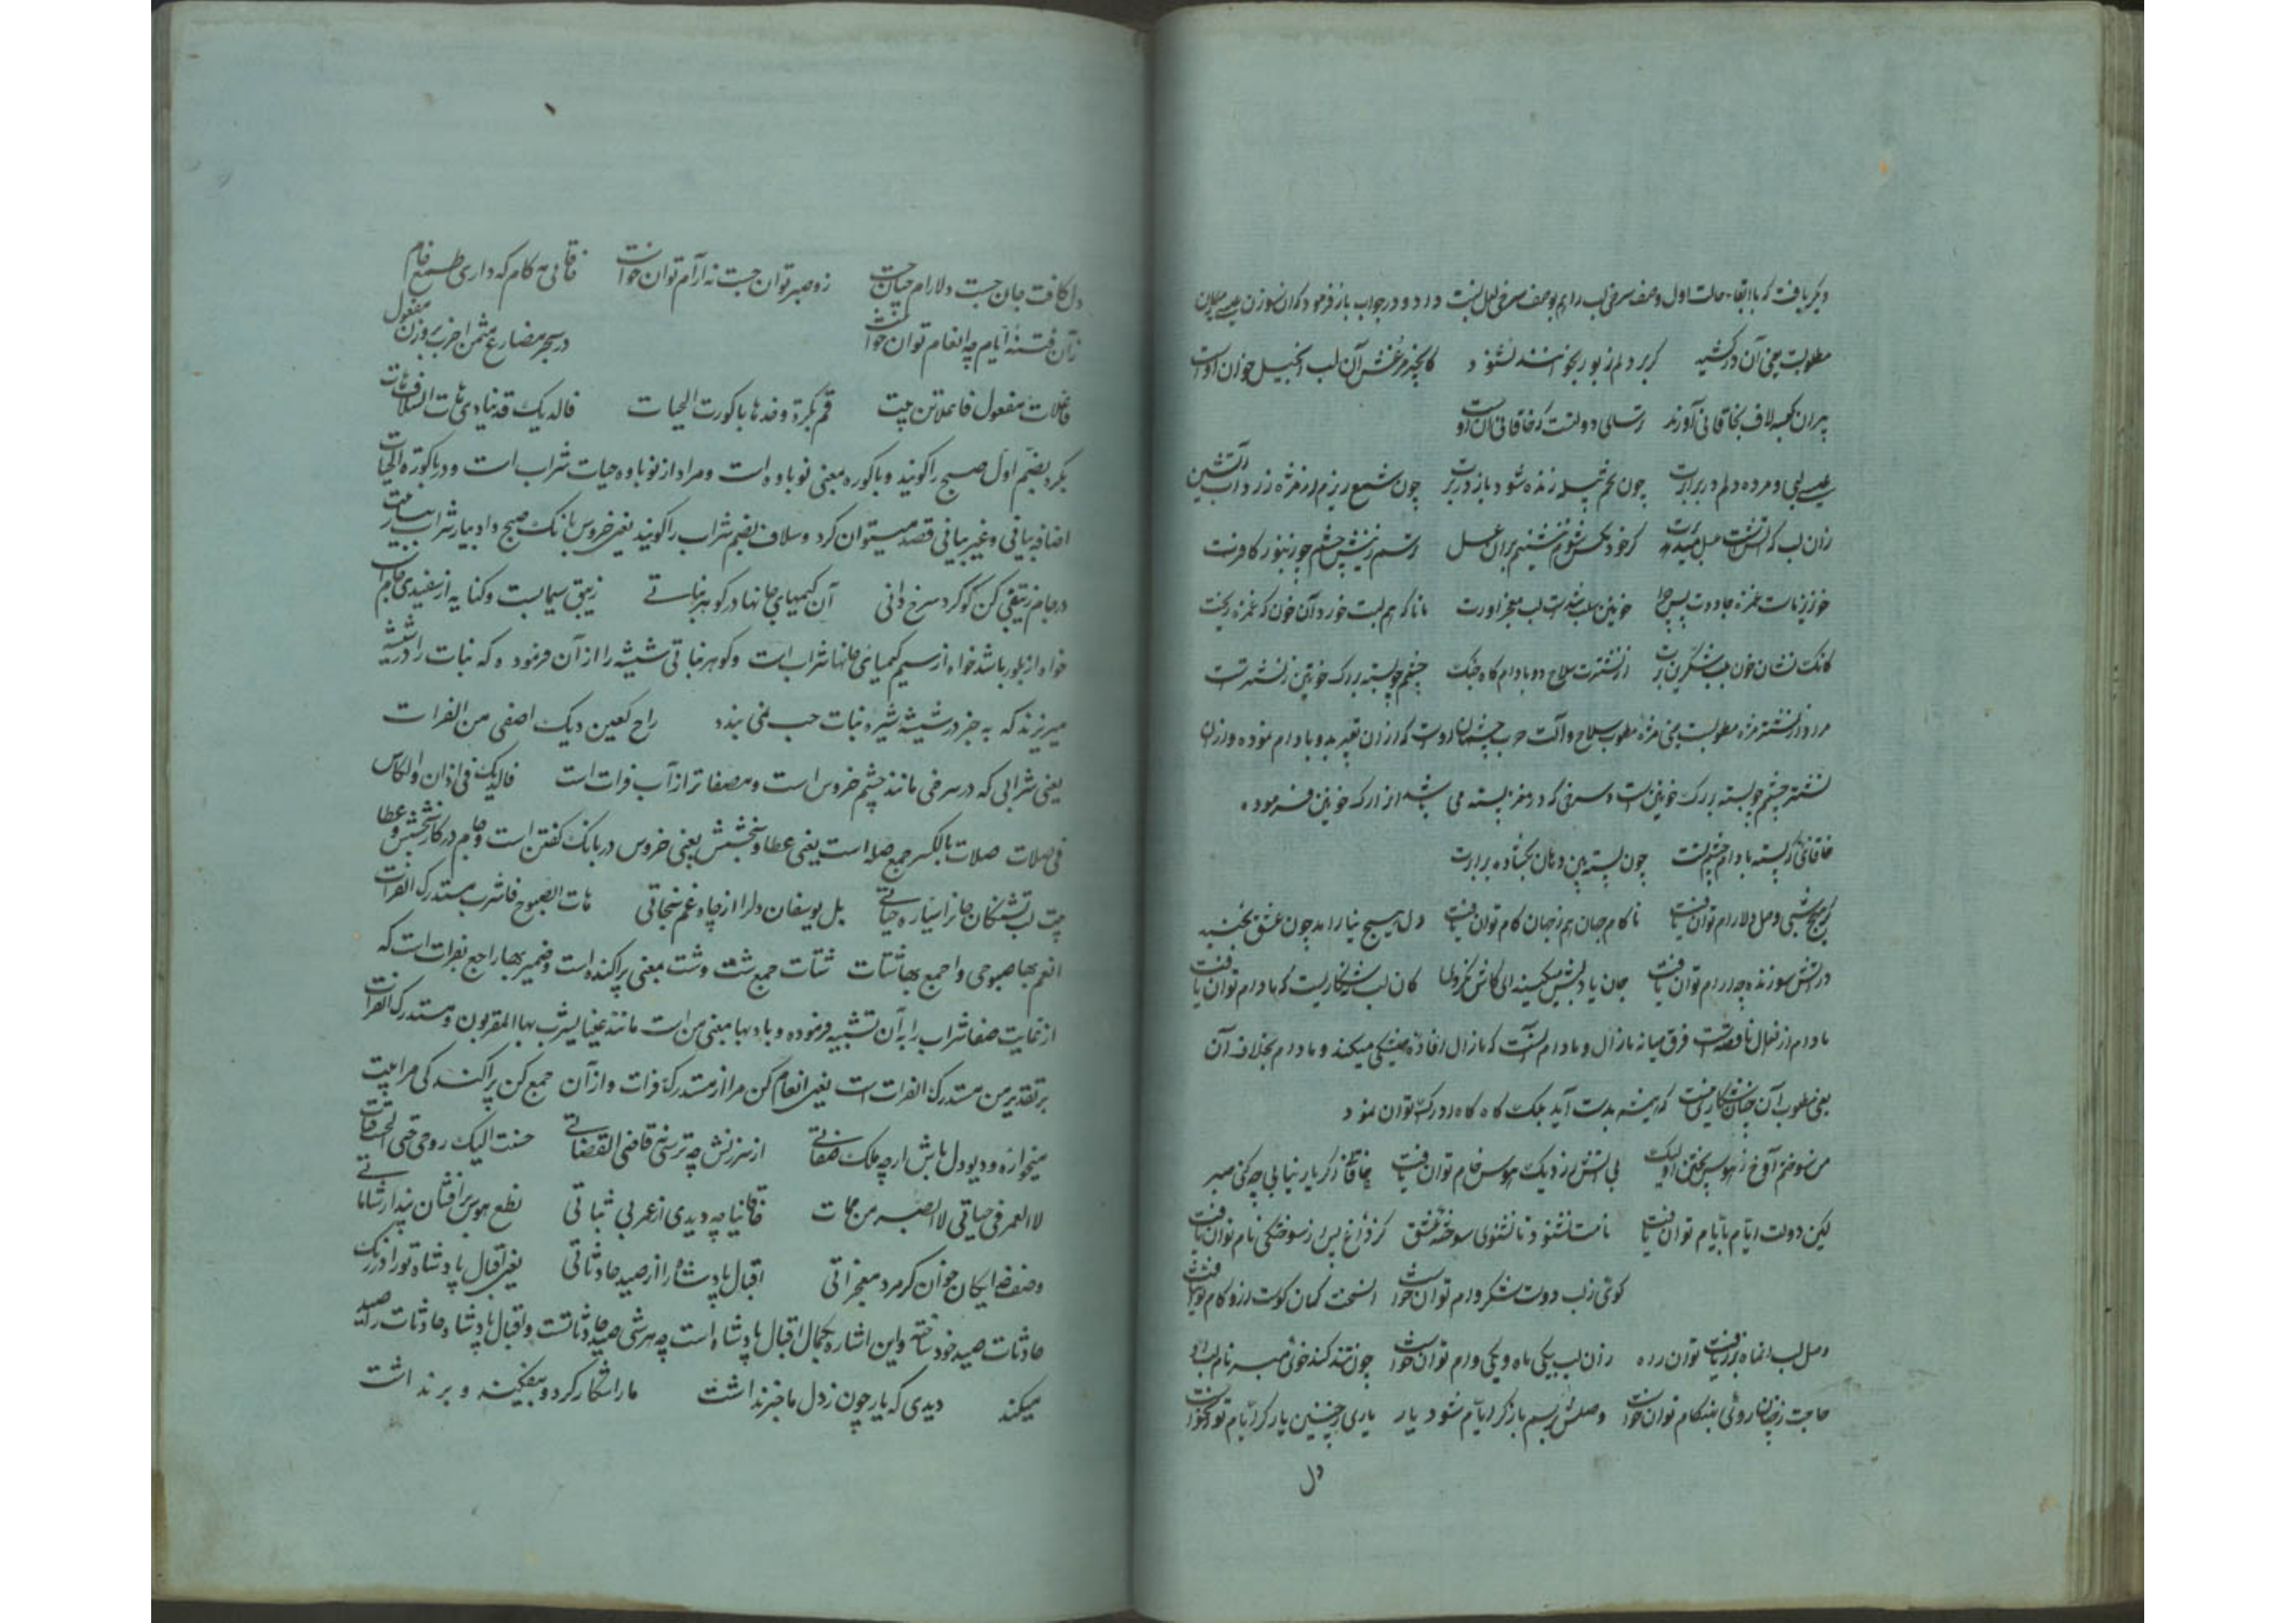 دیگر یافت که با ابقاء حالت اول وصف سرخی لب را هم بوصف سرخی لعل نسبت داد و در جواب باز فرمود که آن نیز زن
مطلوبت آن در کشید کز بر دلم زبور بخوانند نشنود کانجیل
پیران کعبه لاف بخاقانی آورند رسلی دولتست که خاقانی آن اوست
عیسی لبی و مرده دلم در برابرت چون تخم پیله زنده شود باز در برت چون شمع ریزم از مژه زرد آب آتشین
زان لب که آتشست عسل میدهد گر خود مگس شوم ننشینم بران عسل ترسم ز نیش چشم چو زنبور کافرت
خونریز ماست غمزه جادوت پس چرا خونین سلب شدست لب معجزآورت مانا که هم لبت خورد آن خون که غمزه ریخت
کانک نشان خون لب شکرین برت از نشترست سلاح دو بادام گاه جنگ چشم چو پسته پر رگ خونین ز نشترت
مراد از نشتر مژه مطلوبست یعنی مژه مطلوب سلاح و آلت حرب چشمان اوست که ازان تعبیر بدو بادام نموده و ازان
نشتر چشم چو پسته پر رگ خونین است و سرخی که در مغز پسته می باشد ازان رگ خونین فرموده
خاقانی از پسته بادام چشم تست چون پسته بین دهان بگشاده برابرت
گر هیچ شبی وصل دلارام توان یافت تا کام جهان هم ز جهان کام توان یافت دل هیچ نیاراید چون عشق بجنبید
در آتش سوزنده چه آرام توان یافت جان یاد لبش میکند ای کاش نکردی کان لب نه شکاریست که مادام توان یافت
مادام از افعال ناقصه است فرق میانه مازال و مادام آنست که مازال افاده همیشگی میکند و مادام بخلاف آن
یعنی مطلوب آن چنان شکاری نیست که همیشه بدست آید بلکه گاه گاه ادراک توان نمود
من سوختم آوخ ز هوس پختن او لیک بی آتش از دیگ هوس خام توان یافت خاقانی اگر یار نیابی چه کنی صبر
لیکن دولت ایام بایام توان یافت نامت نشنود تا نشوی سوخته عشق کز داغ پس از سوختگی نام توان یافت
گوئی ز لب دوست شکر وام توان خواست
وصل لب آنماه بزر یافت توان زده زان لب بیکی ماه و یکی وام توان خواست چون تند کند خوی مبر نام لب او
حاجت ز چنان روئی بهنگام توان خواست وصلش رسم باز گر ایام شود یار یاری ز چنین یار گر ایام تواند خواست
دل
دل گافت جان جست دلارام چنانست زو صبر توان جست نه آرام توان خواست خاقانی چه کام که داری طمع خام
زان فتنه ایام چه انعام توان خواست در بحر مضارع مثمن اخرب بروزن مفعول
فاعلات مفعول فاعلاتن بیت قم بکرة وخذها باکورة الحیات فالدیک قد ینادی هات السلاف هات
بکره بضم اول صبح را گویند و باکوره بمعنی نوباوه است و مراد از نوباوه حیات شراب است و در باکوره الحیات
اضافه بیانی و غیر بیانی قصد میتوان کرد و سلاف بضم شراب را گویند یعنی خروس بانگ صبح داد بیار شراب بیار بیت
در جام زیبقی کن گوگرد سرخ ذاتی آن کیمیای جانها در گوهر نباتی زیبق سیمابست و کنایه از سفیدی جام است
خواه از بلور باشد خواه از سیم کیمیای جانها شراب است و گوهر نباتی شیشه را از آن فرموده که نبات را در شیشه
میریزند که به جز در شیشه شیره نبات حب نمی بندد راح کعین دیک اصفی من الفرات
یعنی شرابی که در سرخی مانند چشم خروس است و مصفاتر از آب فرات است فالدیک فی اذان و الکاس
فی صلات صلات بالکسر جمع صله است یعنی عطا و بخشش یعنی خروس در بانگ گفتن است و جام در کار بخشش و عطا
بیت لب تشنگان جانرا سیاره حیاتی بل یوسفان دلرا از چاه غم نجاتی هات الصبوح فاشرب مستدرک الفرات
انعم بها صبوحی و اجمع بها شتات شتات جمع شت و شت بمعنی پراکنده است و ضمیر بها راجع بفرات است که
از غایت صفا شراب را به آن تشبیه فرموده و باء بها بمعنی من است مانند عینا یشرب بها المقربون و مستدرک الفرات
بر تقدیر من مستدرک الفرات است یعنی انعام کن مرا از مستدرکه فرات و از آن جمع کن پراکندگی مرا بیت
میخواره و دیودل باش ار چه ملک صفاتی از سرزنش چه ترسی نز قاضی القضاتی حنت الیک روحی حی الحق فات
لا العمر فی حیاتی لا الصبر من مجات خاقانیا چه دیدی از عمر بی ثباتی نطع هوس برافشان پندار شاه ماتی
وصف خدایگان خوان گر مرد معجزاتی اقبال پادشه را از صید حادثاتی یعنی اقبال پادشاه تو را در رنگ
حادثات صید خود ساخته و این اشاره بکمال اقبال پادشاه است چه هر شی صید حادثاتست و اقبال پادشاه حادثات را صید
میکند دیدی که یار چون ز دل ما خبر نداشت ما را شکار کرد و بیفکند و برنداشت